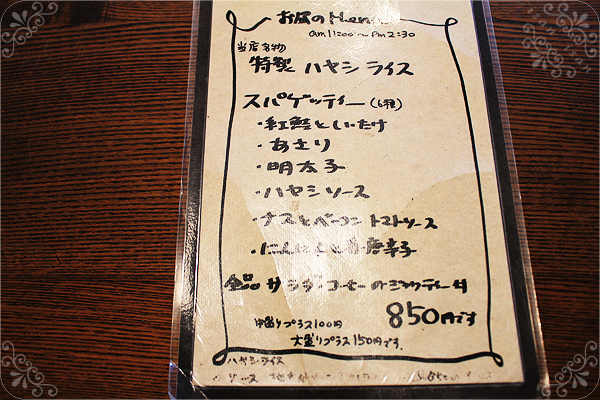 お昼のMenu
am 11:00〜Pm 2:30
当店名物
特製 ハヤシライス
スパゲッティー(6種)
・紅鮭としいたけ
・あさり
・明太子
・ハヤシソース
・ナスとベーコン トマトソース
・にんにくと唐辛子
全品 サラダ・コーヒー
850円です
中盛りプラス100円
大盛りプラス150円です。
ハヤシライス
ソース